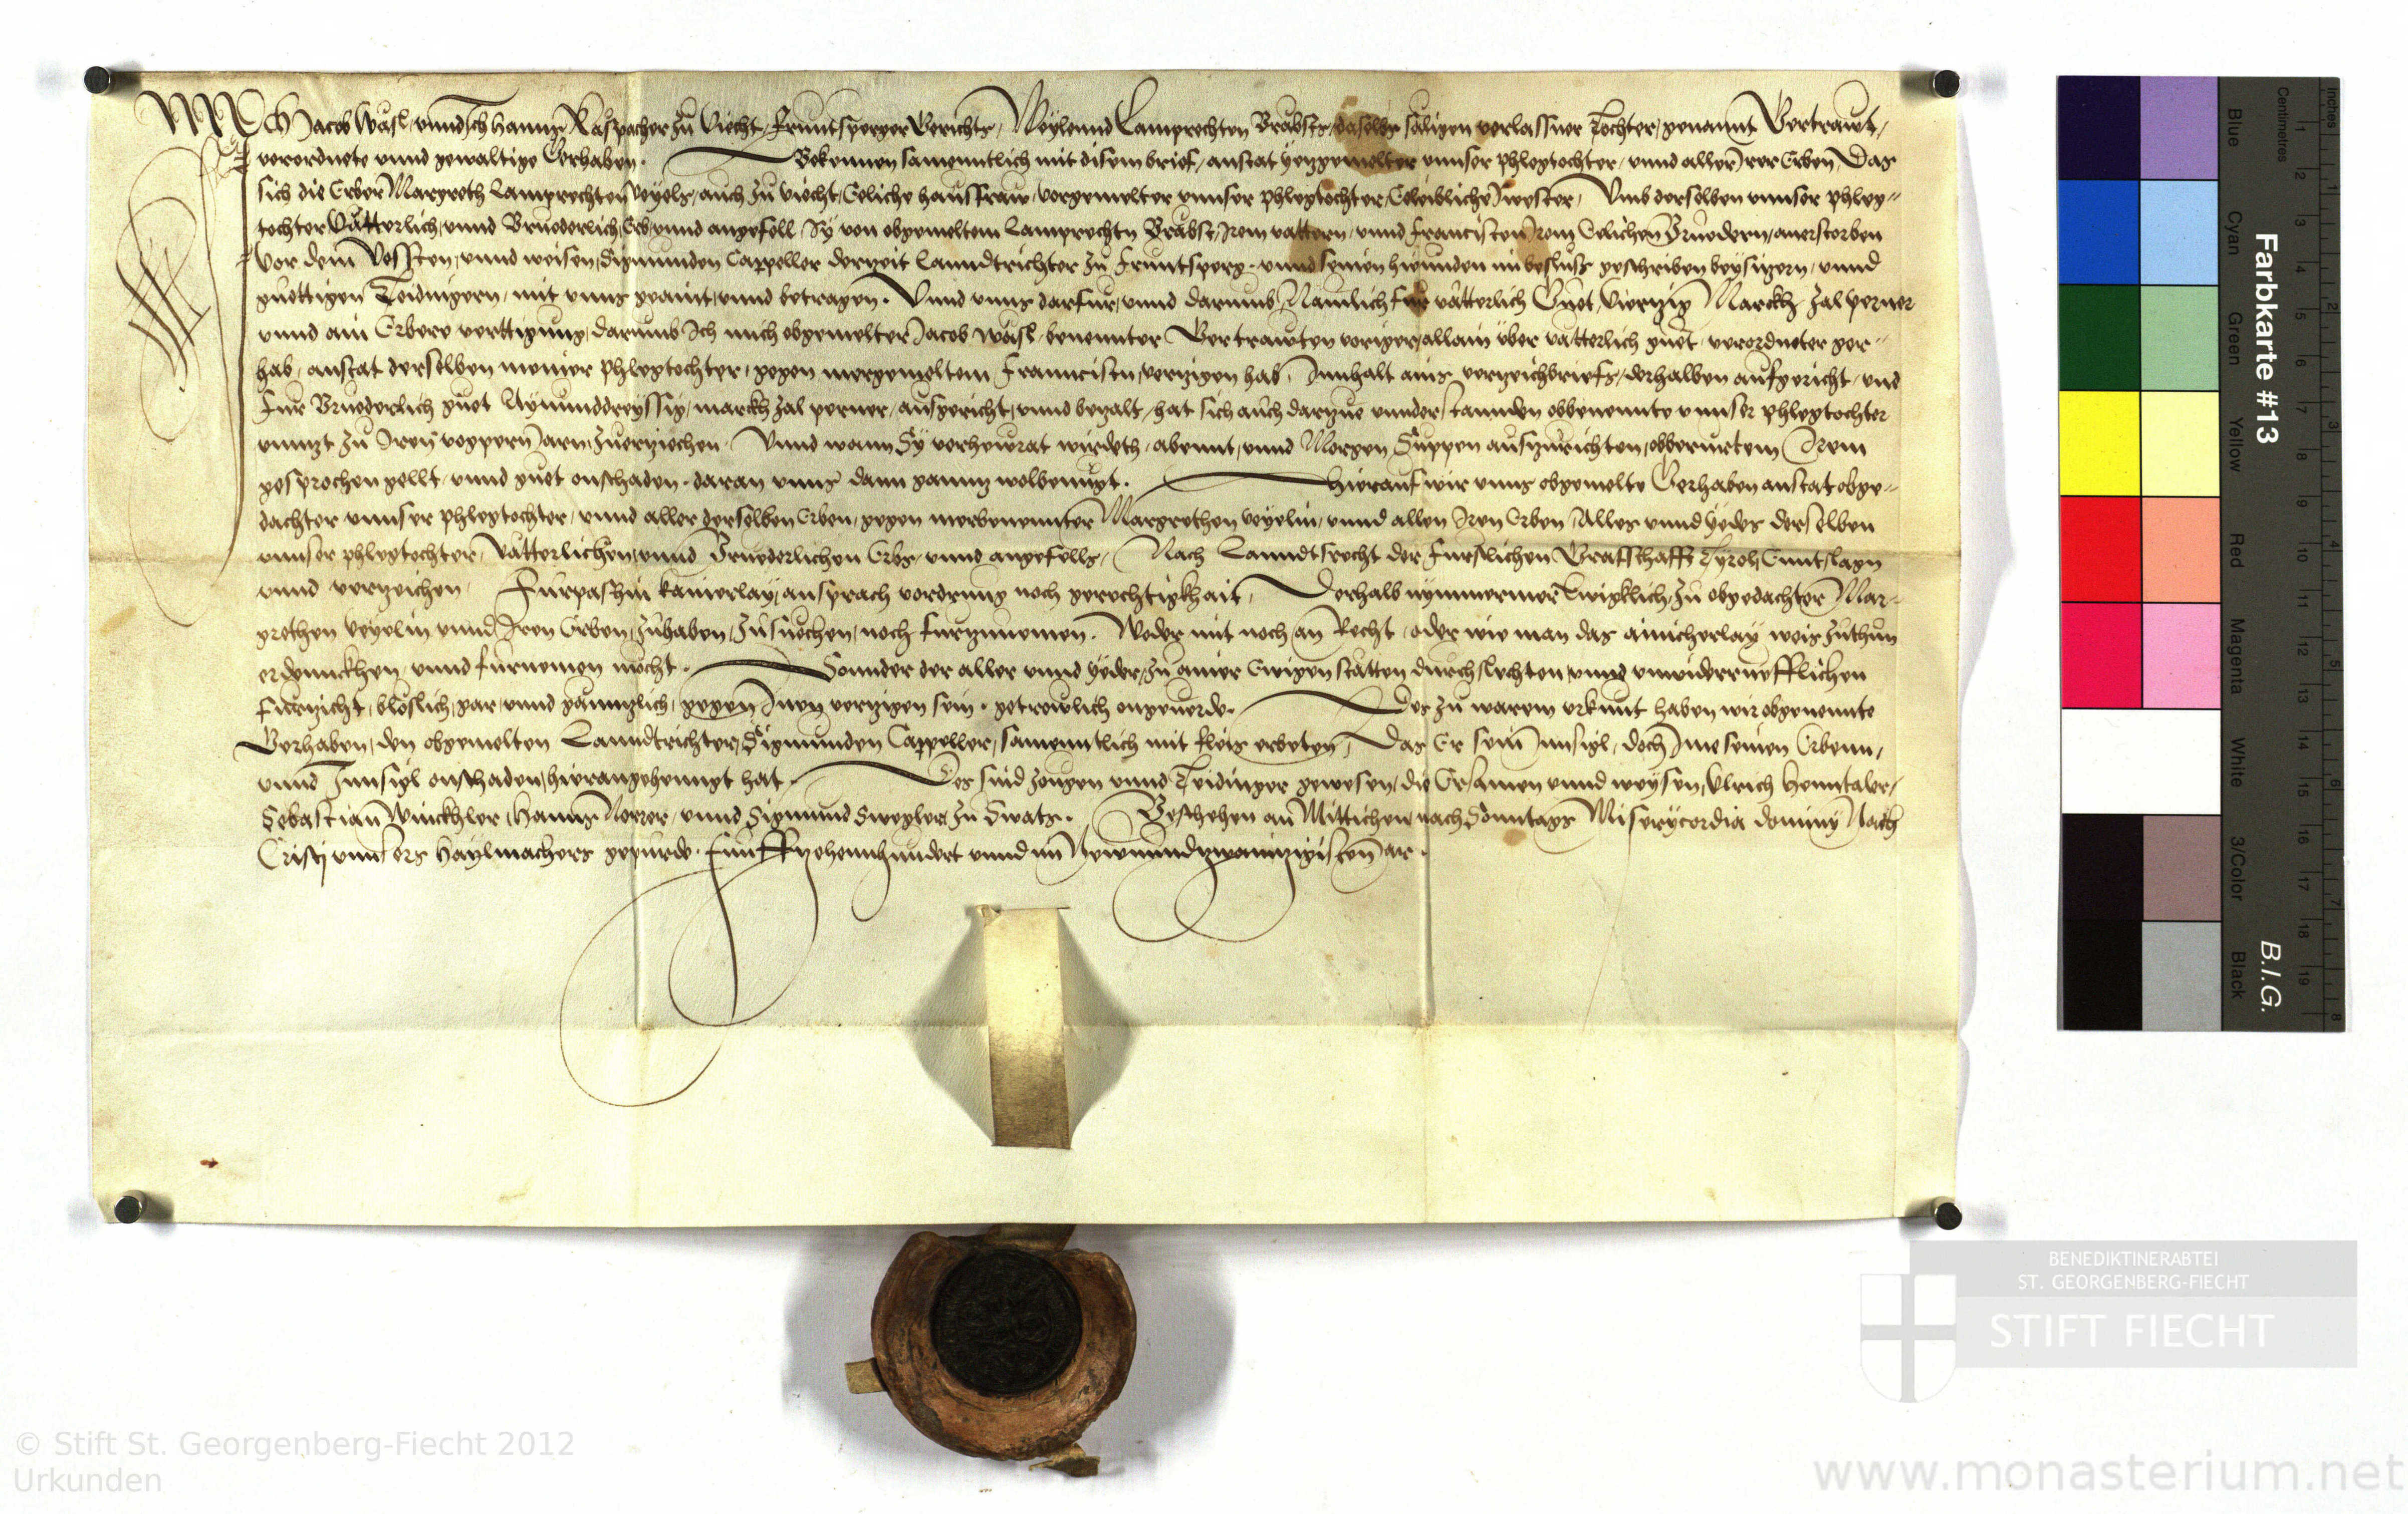 Ich Jacob Wäsl, vnnd Ich Hanns Raspacher zu Viecht, Fruntsperger Gerichts, Weylennd Lamprechten Brabsts, daselbs säligen verlassner Tochter, genannt Gertrawt,
verordnete vnnd gewaltige Gerhaben. Bekennen samenntlich mit disem brief, anstat yezgemelter vnnser phlegtochter, vnnd aller Irer Erben, Das
sich die Erber Margreth Lamprechten Veyels, auch zu Viecht, Eeliche haussfraw, vorgemelter vnnser phlegtochter, Eeleibliche Swester, Vmb derselben vnnser phleg-
tochter Vätterlich, vnnd Bruederlich, Erb, vnnd angefell, Sy von obgemeltem Lamprechtn Brabst, Irem vattern, vnnd Francisten Irem Eelichen Bruedern, anerstorben
Vor dem Vessten, vnnd weisen, Sigmunden Cappeller derzeit Lanndtrichter zu Fruntsperg, vnnd seinen hieunden im besluss geschriben beysizern, vnnd
guettigen Teidingern, mit vnns geaint, vnnd betragen. Vnnd vnns darfur, vnnd darumb, Namlich fur vätterlich Guet, Vierzig Marckh zal perner
vnnd ain Erbere verttigung, darumb Ich mich obgemelter Jacob Wäsl, benennter Gertrawten voriger, allain über vätterlich guet, verordneter ger-
hab, anstat derselben meiner phlegtochter, gegen mergemeltem Francistn, verzigen hab, Innhalt ains verzeichbriefs, derhalben aufgericht, vnd
fur Bruederlich guet Aynunddreyssig, marckh zal perner, ausgericht, vnnd bezalt, hat sich auch darzue vnnderstannden obbenennte vnnser phlegtochter
vnnzt zu Iren vogpern Jarn zuerziechen. Vnnd wann Sy verheyrat wurdeth, abennt, vnnd Morgen Suppen auszurichten, obberurtem Irem
gesprochen gellt, vnnd guet onschaden, daran vnns dann gannz wolbenuegt. Hierauf wir vnns obgemelte Gerhaben anstat obge-
dachter vnnser phlegtochter, vnnd aller derselben Erben, gegen merbenennter Margrethen Veyelin, vnnd allen Iren Erben, Alles vnnd yedes derselben
vnnser phlegtochter, Vätterlichen, vnnd Bruederlichen Erbs, vnnd angefells, Nach Lanndtsrecht der furstlichen Grafschafft Tyrol, Enntslagn
vnnd verzeichen, Furpashin kainerlay, ansprach vordrung noch gerechtigkhait, Derhalb nymmermer Ewigklich, zu obgedachter Mar-
grethen Veyelin vnnd Iren Erben, zuhaben, zusuechen, noch furzunemen. Weder mit noch an Recht, oder wie man das ainicherlay weis zuthun
erdennckhen, vnnd furnemen möcht. Sonnder der aller vnnd yeder, zu ainer Ewigen stätten durchslechten, vnnd vnwiderrueflichen
furzicht, bloslich, gar, vnnd gännzlich, gegen Inen verzigen sein, getrewlich ongeuerde. Des zu warem vrkunt haben wir obgenennte
Gerhaben, den obgemelten Lanndtrichter, Sigmunden Cappeller, samenntlich mit fleis erbeten, Das Er sein Insigl, doch Ime seinen Erben,
vnnd Innsigl onschaden, hieran gehenngt hat. Des sind zeugen vnnd Teidinger gewesen, die Ersamen vnnd weysen, Vlrich Henntaler,
Sebastian Winckhler, Hanns Nerrer, vnnd Sigmund Swegler, zu Swats. Beschehen an Mittichen, nach Sonntags Miserycordia dominy Nach
Cristj vnnsers Haylmachers gepurde, funffzehennhundert vnnd im Newnundzwainzigisten Jar.
Farbkarte #13
B.I.G.
Blue
Cyan
Green
Yellow
Red
Magenta
White
3/Color
Black
Centimetres
Inches
1 2 3 4 5 6 7 8 9 10 11 12 13 14 15 16 17 18 19
1 2 3 4 5 6 7 8
BENEDIKTINERABTEI
ST. GEORGENBERG-FIECHT
STIFT FIECHT
© Stift St. Georgenberg-Fiecht 2012
Urkunden
www.monasterium.net